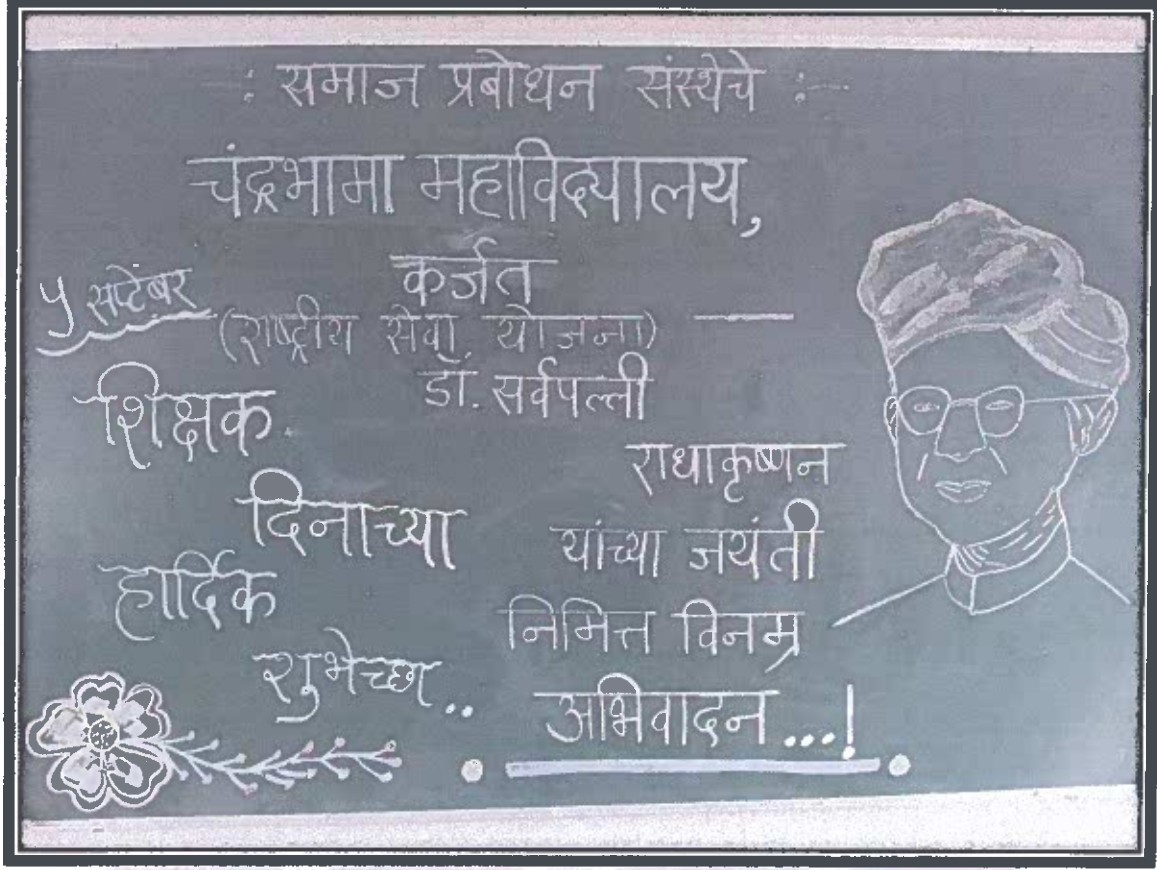 -: समाज प्रबोधन संस्थेचे :-
चंद्रभामा महाविद्यालय,
कर्जत
(राष्ट्रीय सेवा योजना)
५ सप्टेंबर
शिक्षक
दिनाच्या
हार्दिक
शुभेच्छा..
डॉ. सर्वपल्ली
राधाकृष्णन
यांच्या जयंती
निमित्त विनम्र
अभिवादन...!